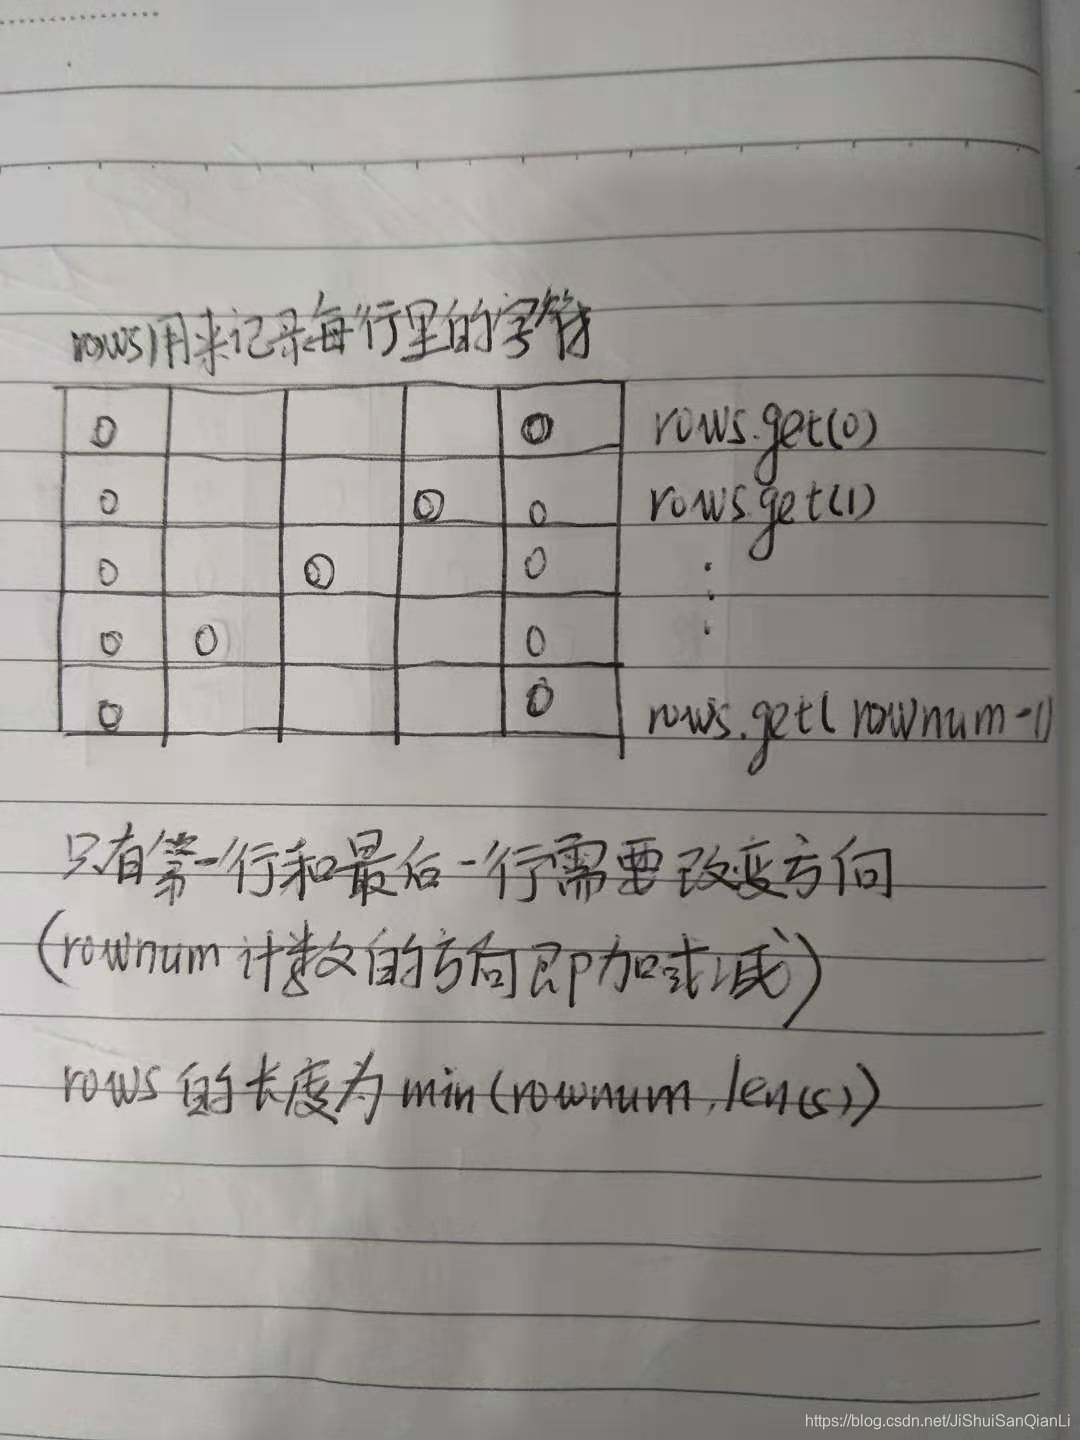 rows用来记录每行里的字符
rows.get(0)
rows.get(1)
rows.get(rownum-1)
只有第一行和最后一行需要改变方向
(rownum 计数的方向即加或减)
rows 的长度为 min(rownum,len(s))
https://blog.csdn.net/JiShuiSanQianLi